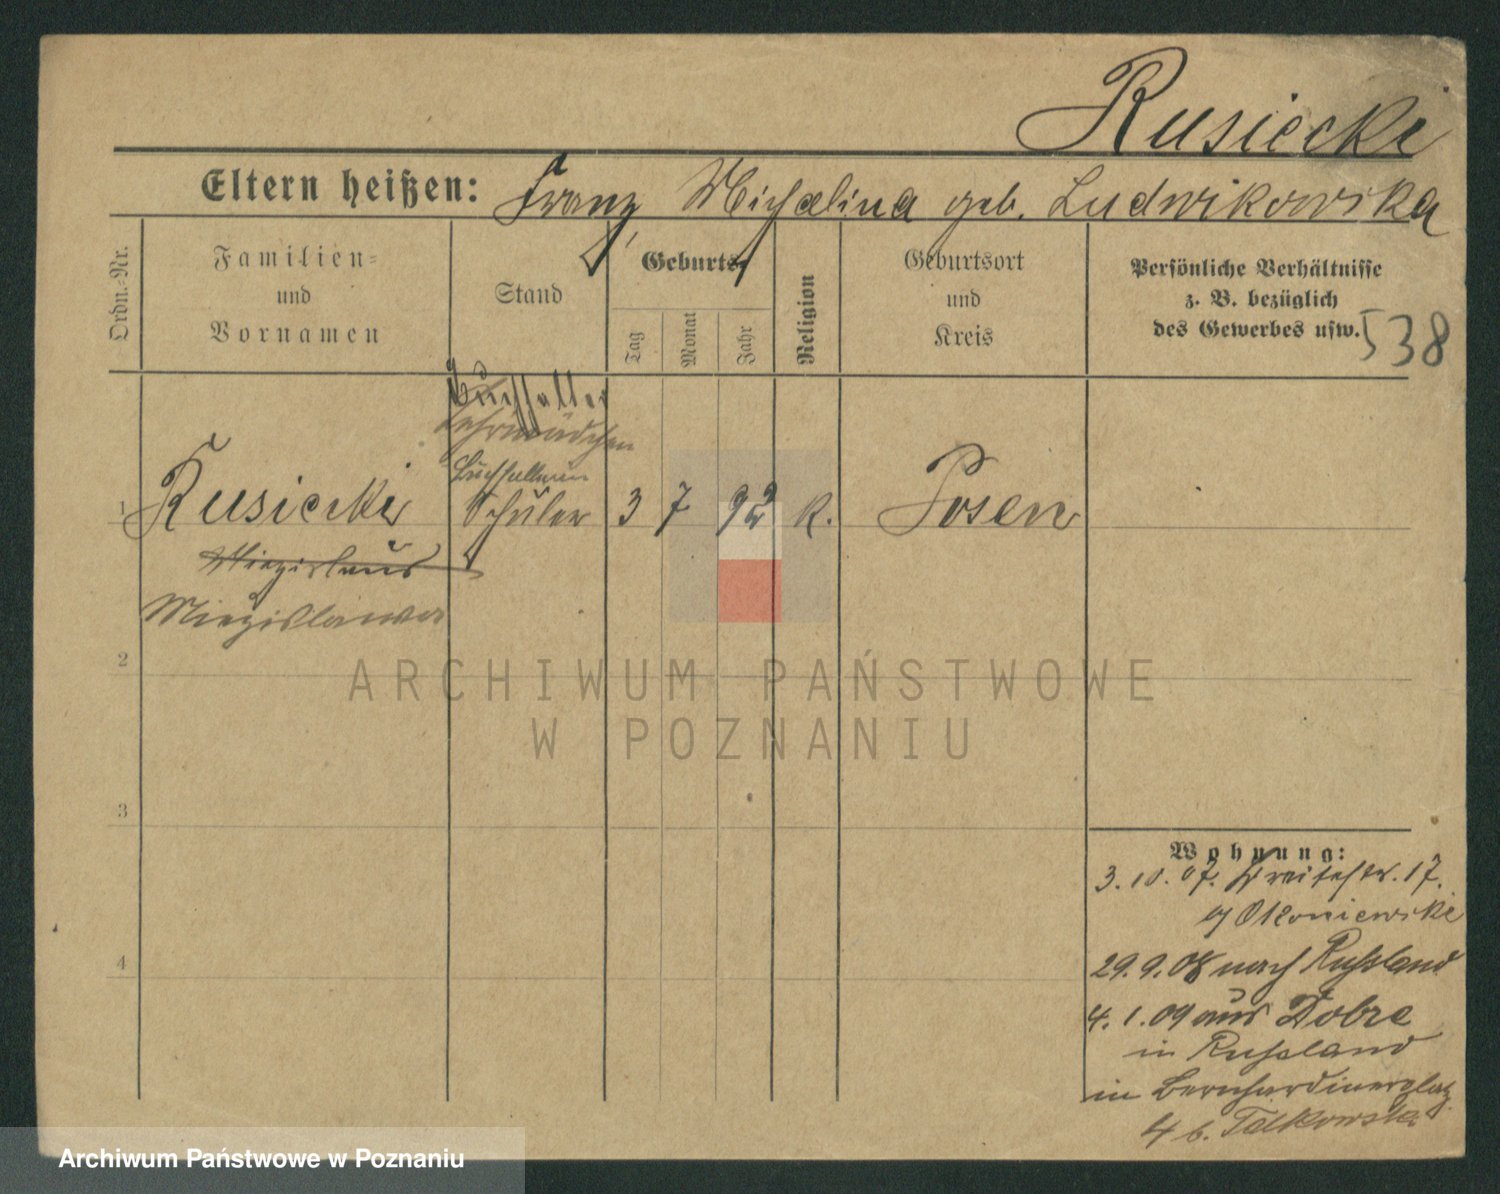 Rusiecki
Eltern heißen: Franz, Michalina geb. Ludwikowska
Ordn.-Nr.
Familien-
und
Vornamen
Stand
Geburts-
Tag
Monat
Jahr
Religion
Geburtsort
und
Kreis
Persönliche Verhältnisse
z. B. bezüglich
des Gewerbes usw.
538
Buchhalter
Lehrmädchen
Buchhalterin
1 Rusiecki Schüler 3 7 92 k. Posen
Miezislaus
Miezislawa
2
3
4
Wohnung:
3.10.07. Breitestr. 17.
b/ Okoniewski
29.9.08 nach Russland
4.1.09 aus Dobre
in Russland
in Bernhardinerplatz
4 b. Talkowska
ARCHIWUM PAŃSTWOWE
W POZNANIU
Archiwum Państwowe w Poznaniu